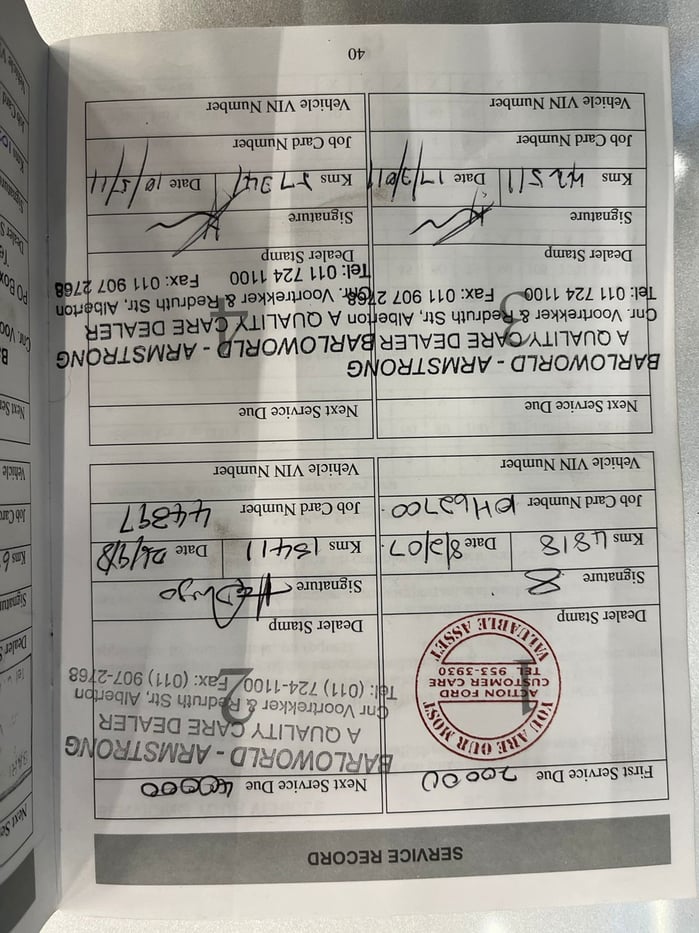 SERVICE RECORD
First Service Due 20000
YOU ARE OUR MOST
ACTION FORD
CUSTOMER CARE
TEL 953-3930
VALUABLE ASSET
1
Dealer Stamp
Signature
Kms 4818 Date 8/2/07
Job Card Number
Vehicle VIN Number
Next Service Due 40000
BARLOWORLD - ARMSTRONG
A QUALITY CARE DEALER
Cnr Voortrekker & Redruth Str, Alberton
Tel: (011) 724-1100 Fax: (011) 907-2768
2
Dealer Stamp
Signature
Kms 15411 Date
Job Card Number 44397
Vehicle VIN Number
Next Service Due
BARLOWORLD - ARMSTRONG
A QUALITY CARE DEALER
Cnr. Voortrekker & Redruth Str, Alberton
Tel: 011 724 1100 Fax: 011 907 2768
3
Dealer Stamp
Signature
Kms 42511 Date
Job Card Number
Vehicle VIN Number
Next Service Due
BARLOWORLD - ARMSTRONG
A QUALITY CARE DEALER
Cnr. Voortrekker & Redruth Str, Alberton
Tel: 011 724 1100 Fax: 011 907 2768
4
Dealer Stamp
Signature
Kms Date 10/5/11
Job Card Number
Vehicle VIN Number
40